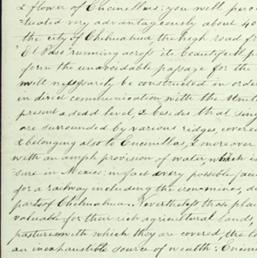 & flower of Encinillas: you will perc
ituated very advantageously about 40
the city of Chihuahua the high road f
El Paso" running across its beautiful p
form the unavoidable passage for the
will necessarily be constructed in orde
in direct communication with the Unit
present a dead level, & besides that sin
are surrounded by various ridges, covere
& belonging also to Encinillas, & moreover
with an ample provision of water, which is
sure in Mexico: in fact every possible fac
for a railway including the economical, de
part of Chihuahua. Nevertheless that plai
valuable for their rich agricultural lands,
pasture with which they are covered, the l
an inexhaustible source of wealth: Encini